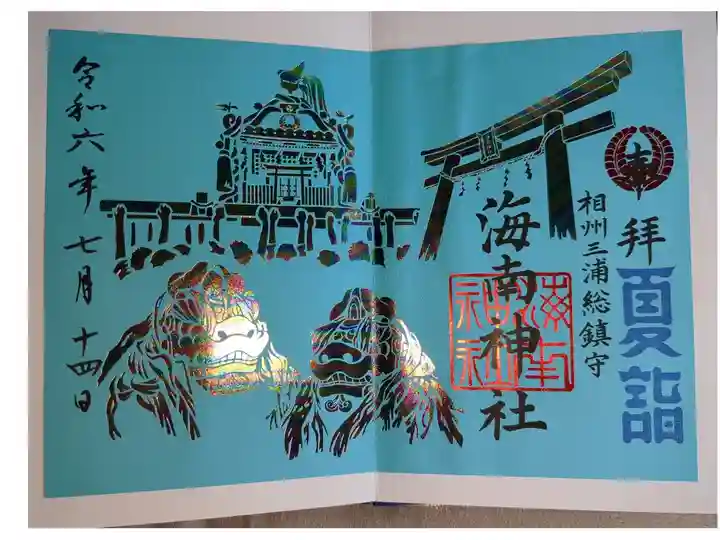 奉
拝
夏詣
相州三浦総鎮守
海南神社
海南
神社
令和六年七月十四日